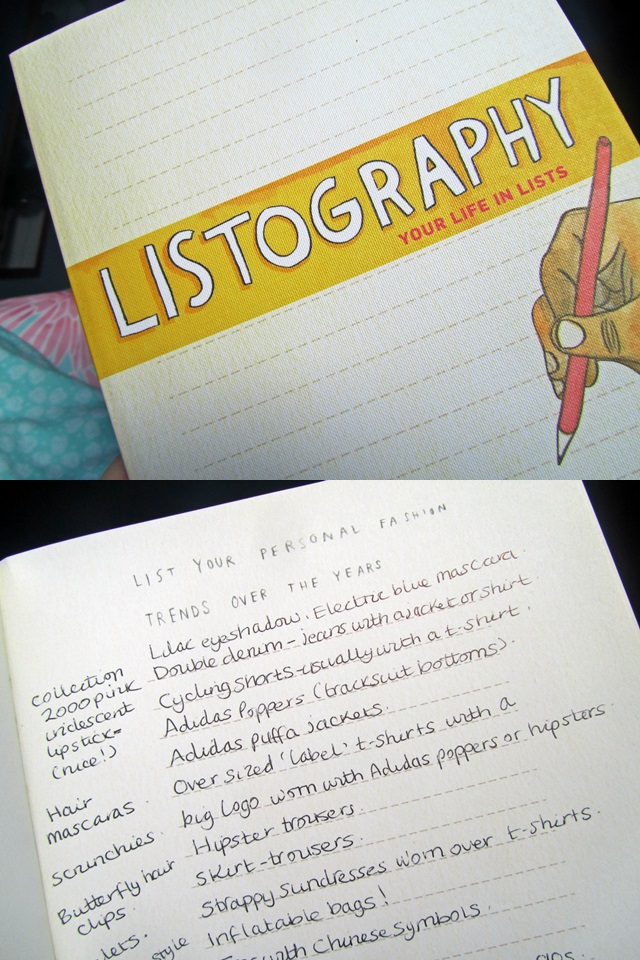 LISTOGRAPHY
YOUR LIFE IN LISTS
LIST YOUR PERSONAL FASHION
TRENDS OVER THE YEARS
Lilac eyeshadow. Electric blue mascara.
Double denim - jeans with a jacket or shirt
Cycling shorts - usually with a t-shirt.
Adidas Poppers (tracksuit bottoms).
Adidas puffa jackets.
Over sized 'label' t-shirts with a
big logo worn with Adidas poppers or hipsters.
Hipster trousers.
Skirt-trousers.
Strappy sundresses worn over t-shirts.
Inflatable bags!
with Chinese symbols.
collection
2000 pink
iridescent
lipstick -
(nice!)
Hair
mascaras.
Scrunchies.
Butterfly hair
clips.
style